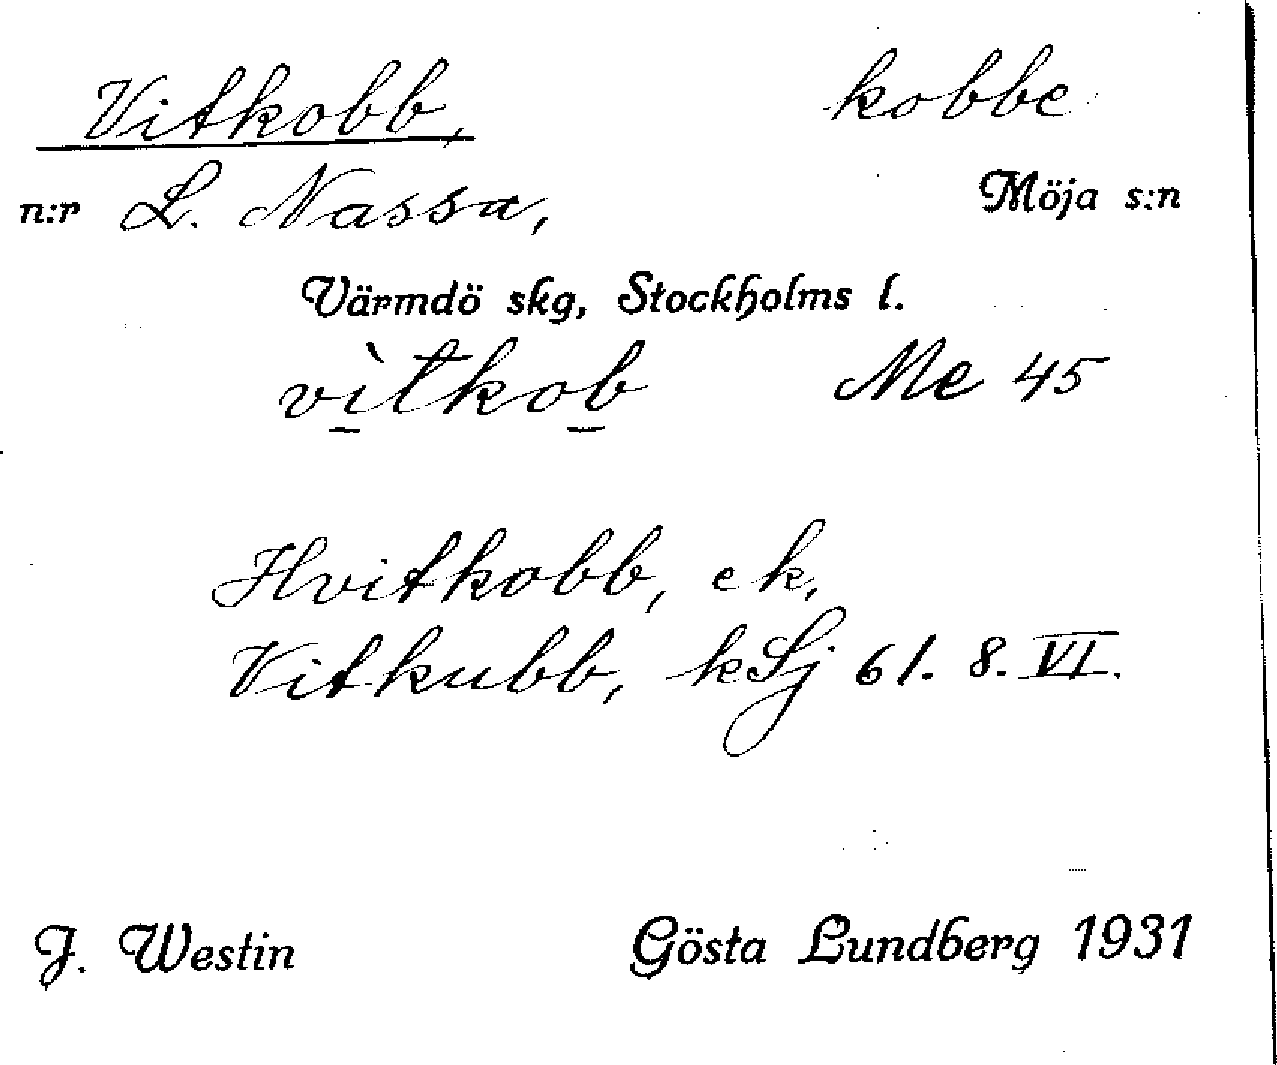 Vitkobb, kobbe
n:r L. Nassa, Möja s:n
Värmdö skg, Stockholms l.
vìtkob Me 45
Hvitkobb, ek,
Vitkubb, kSj 61. 8. VI.
J. Westin Gösta Lundberg 1931